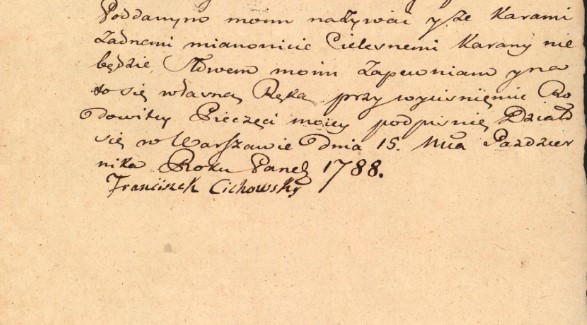 Poddanyno moim nazywać y że Karami
żadnemi mianowicie Cielesnemi Karany nie
będzie Słowem moim zapewniam y na
to się własną Ręką przy wyciśnieniu Ro
dowitey Pieczęci moiey podpisuię Działo
się w Warszawie Dnia 15. Mca Paździer
nika Roku Panef 1788.
Franciszek Cichowsky